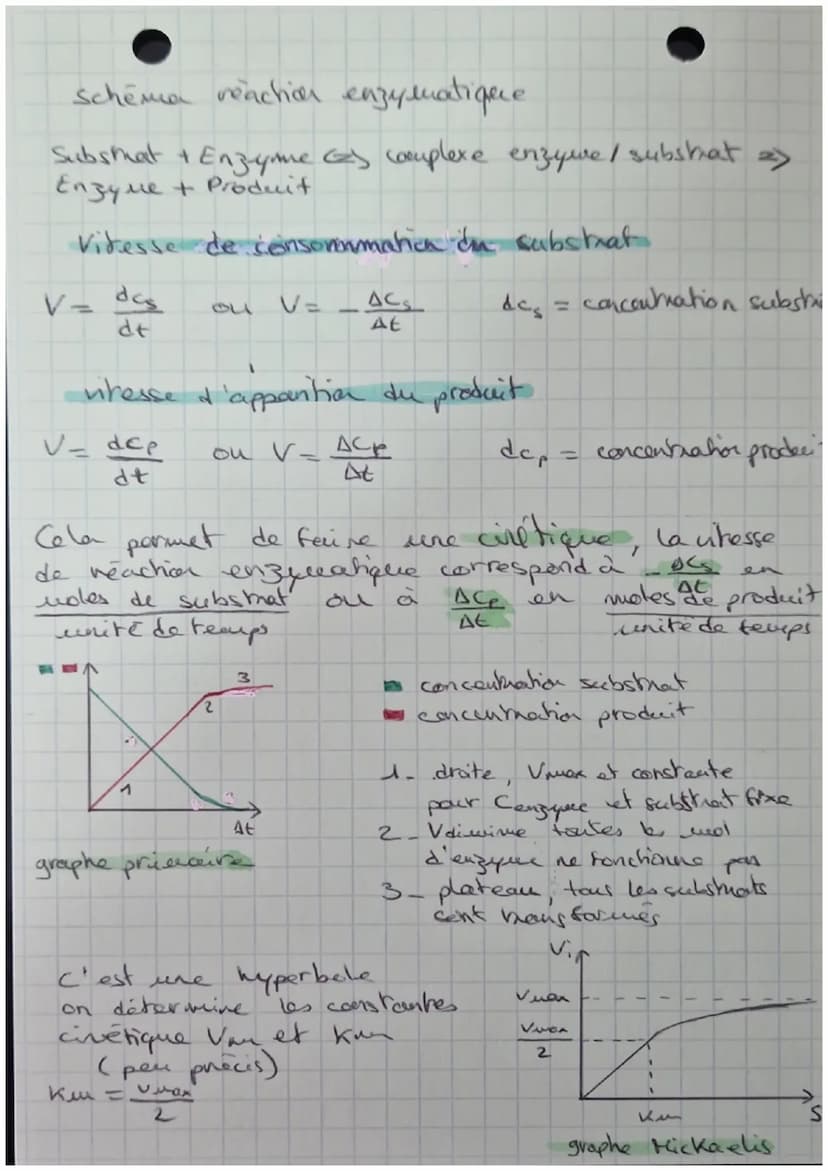 Schéma réaction enzymatique
Substrat + Enzyme <=> complexe enzyme / substrat =>
Enzyme + Produit
Vitesse de consommation du substrat
V = dcs/dt ou V = - ΔCs/Δt dcs = concentration substra
vitesse d'apparition du produit
V = dcp/dt ou V = ΔCp/Δt dcp = concentration produi
Cela permet de faire une cinétique, la vitesse
de réaction enzymatique correspond à - ΔCs/Δt en
moles de substrat/unité de temps ou à ΔCp/Δt en moles de produit/unité de temps
3
2
1
Δt
graphe primaire
concentration substrat
concentration produit
1 - droite, Vmax et constante
pour Cenzyme et substrat fixe
2 - V diminue toutes les mol
d'enzyme ne fonctionne pas
3 - plateau, tous les substrats
sont transformés
C'est une hyperbole
on détermine les constantes
cinétique Vm et Km
(peu précis)
Km = Vmax/2
Vi
Vmax
Vmax/2
Km
S
graphe Mickaelis